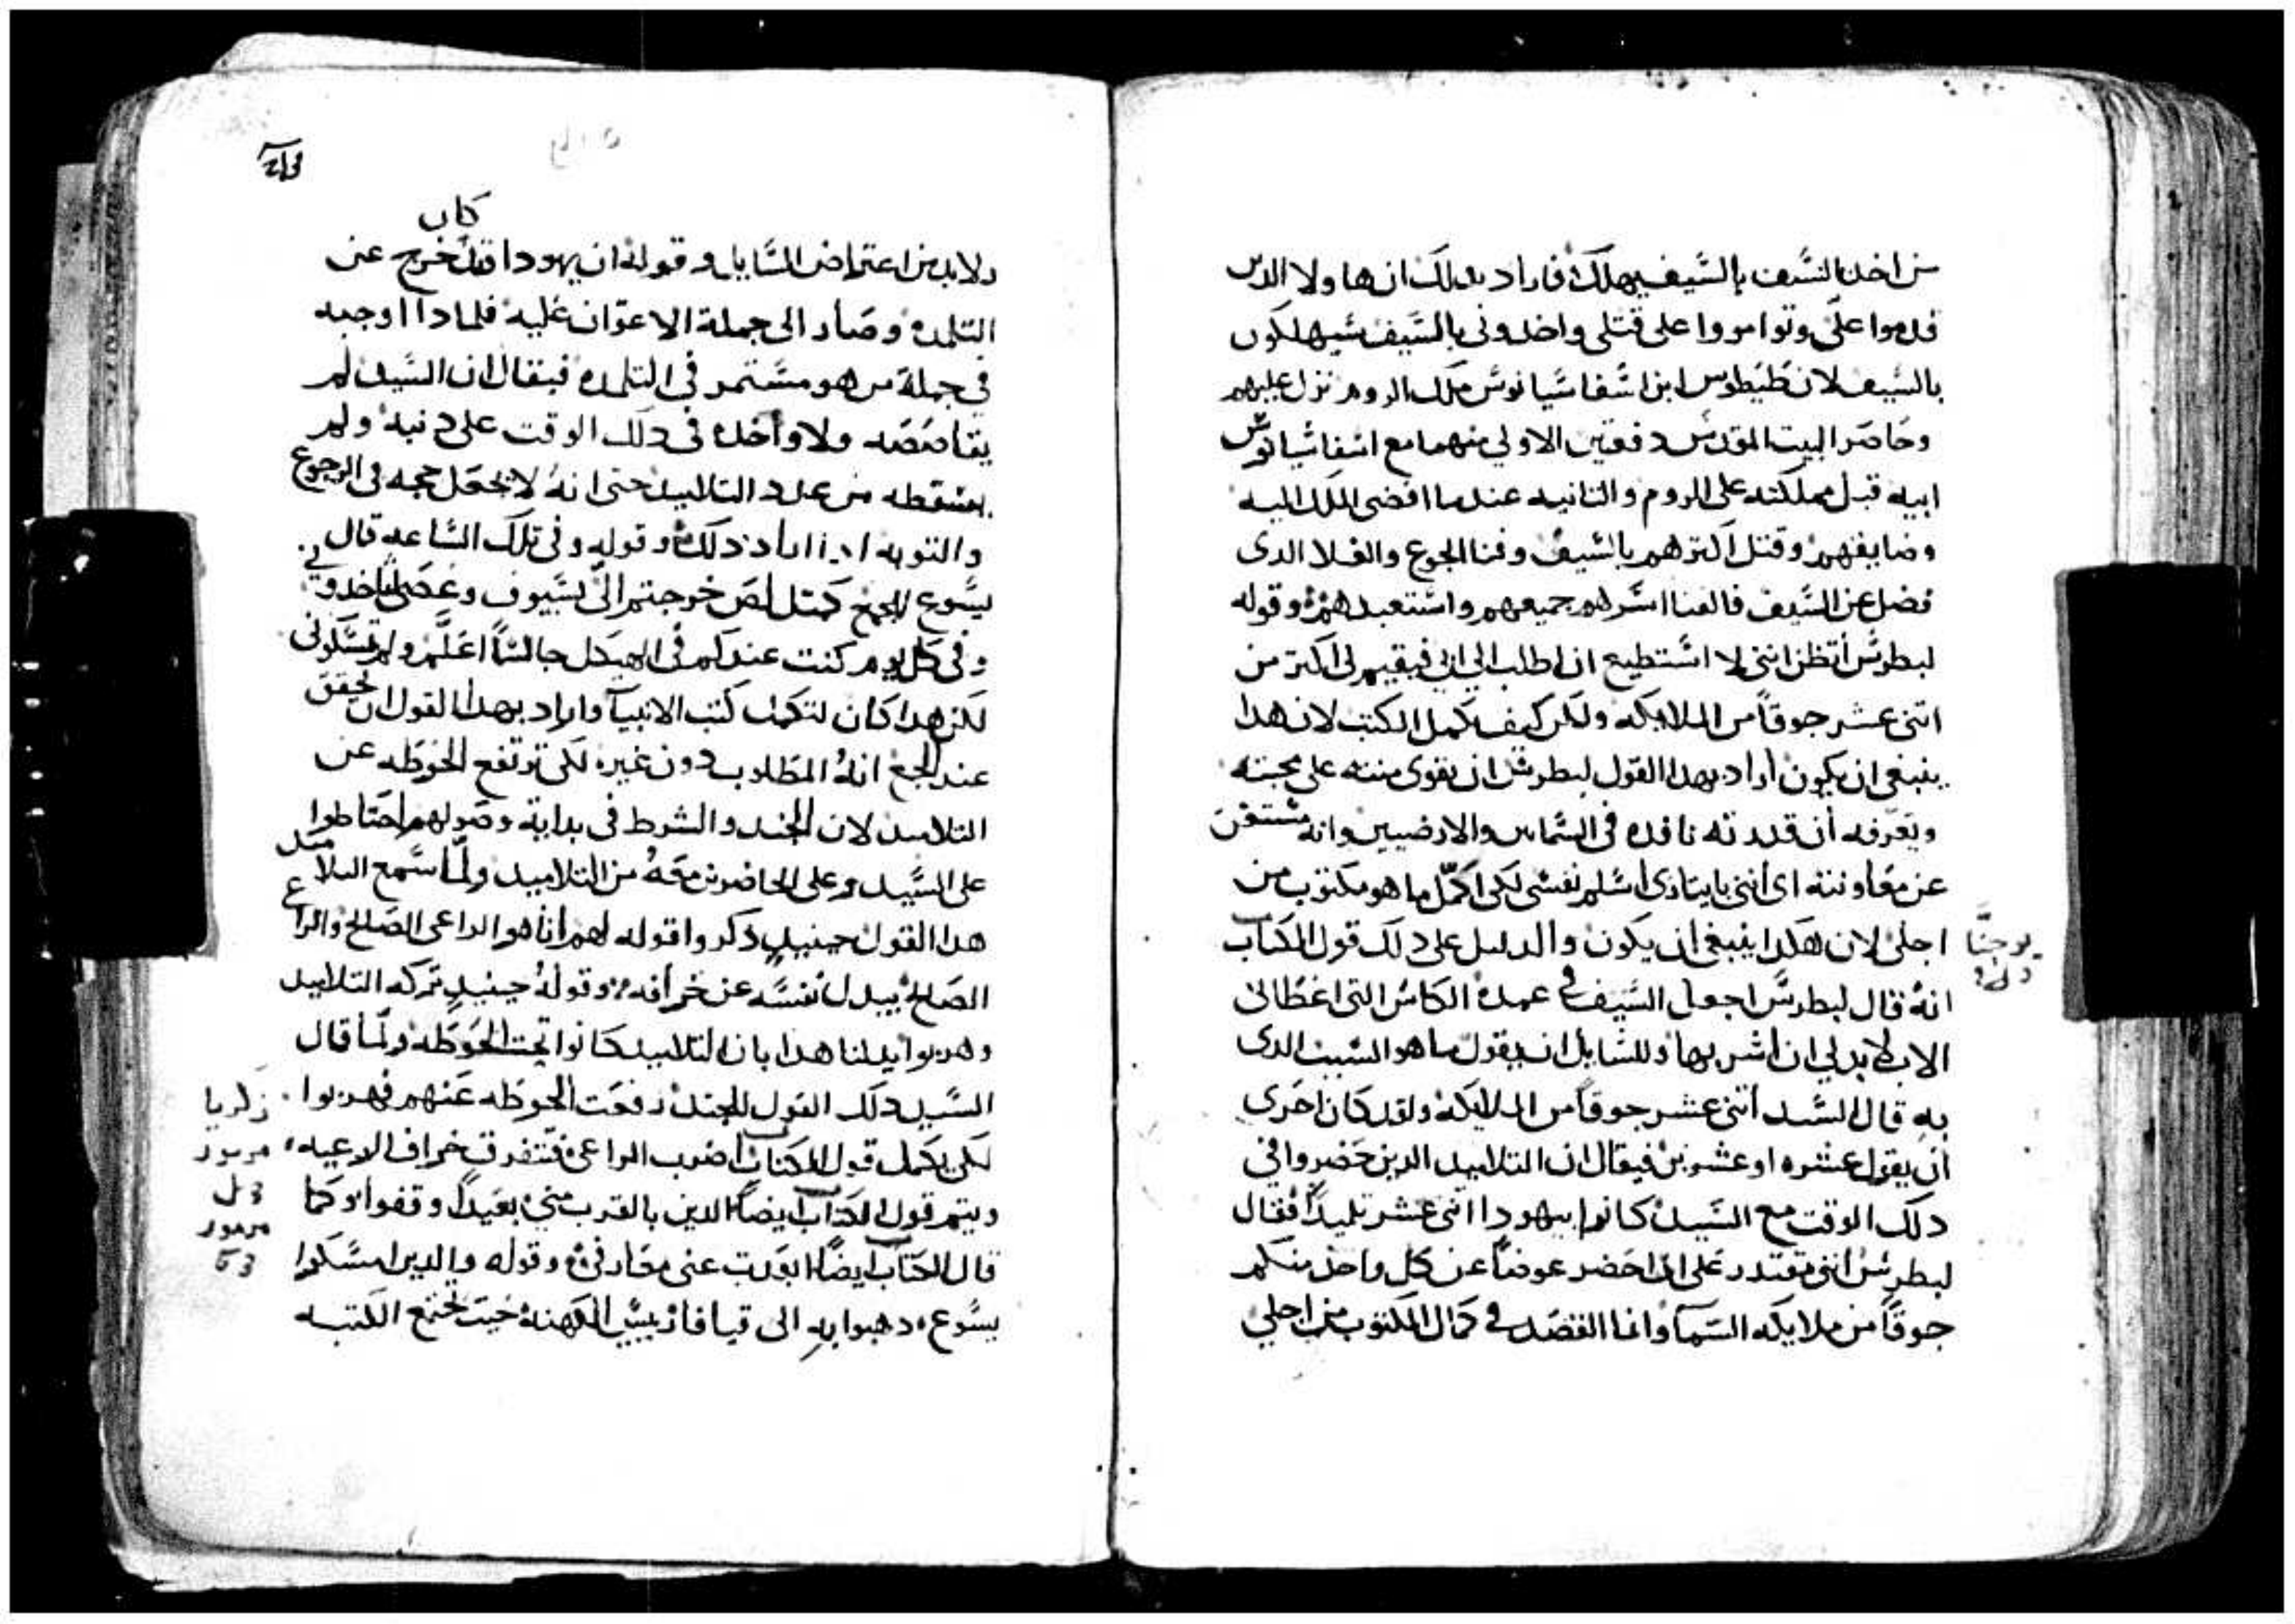 من اخد بالسَّيف بالسَّيف يهلك فاراد بدلك ان هاولا الدين
قدموا علىّ وتوامروا على قتلى واخدونى بالسَّيف سَيهلكون
بالسَيف لان طيطوس ابن اسَفاسَيانوسَ ملك الروم نزل عليهم
وحَاصَر البيت المقدسَ دفعتين الاولي منهما مع اسَفاسَيانوسَ
ابيه قبل مملكته على الروم والتانيه عندما افضى الملك اليه
وضايقهم وقتل اكترهم بالسَيف وفنا الجوع والغلا الدى
فضل عن السَّيف فالفنا اسَرهم جميعهم واسَتعبدهم وقوله
لبطرسَ أتظن اننى لا اسَتطيع ان اطلب الى ابى فيقيم لى اكتر من
اتنى عشر جوقاً من الملايكه ولكن كيف تكمل الكتب لان هدا
ينبغى ان يكون أراد بهدا القول لبطرسَ ان يقوى منته على محبته
ويَعَرّفه أن قدرته نافده فى السَّماييں والارضيين وانه مسَتغن
عن معَاونته اى أننى بايتارى اسَلم نفسَى لكى اكمّل ما هو مكتوب من
اجلى لان هكدا ينبغى ان يكون والدليل على دلك قول الكتاب
يوحنّا
انهُ قال لبطرسَ اجعل السَّيف فى غمدهْ الكاسَ التى اعَطَانى
الاب لابد لي ان اشربها وللسَايل ان يقول ما هو السَبب الدى
بهِ قال السَّيد أتنى عشر جوقاً من الملايكهْ ولقد كان احَرى
أن يقول عشره او عشرين فيقال ان التلاميد الدين حَضروا فى
دلك الوقت مع السَّيد كانوا بيهودا اتنى عشر تلميداً فقال
لبطرسَ اننى مقتدر عَلى ان احَضر عوضاً عن كل واحد منكم
جوقاً من ملايكه السَمآ وانما القصَد فى كمال المكتوب من اجلي
213
كان
ولابد من اعتراض السَّايل وقولهُ ان يهودا قد خرج عن
التلمدهْ وصَار الى جملة الاعوَان عَليهْ فلمادا اوجبه
في جملة من هو مسَّتمر فى التلمده فيقال ان السَّيد لم
يقاصَصَه ولا واَخده فى دلك الوقت على دنبهْ ولم
يسَقطه من عدد التلاميد حتى انهُ لا تجعَل حجه فى الرجوع
والتوبه ادا اراد دلكَ وقوله وفى تلك السَّاعه قال
يسَّوع للجمع كمتل لصَ خرجتم الىّ بسَّيوف وعَصَى لتاخدونى
وفى كل يوم كنت عندكم فى الهيكل جالسَاً اعَلّم ولم تمسَّكونى
لكن هدا كان لتكمل كتب الانبيآ واراد بهدا القول ان يحقق
عند الجمع انهُ المطلوب دون غيره لكى ترتفع الحوطه عن
التلاميد لان الجند والشرط فى بداية وصَولهم احَتاطوا
على السَّيد وعلى الحاضرين معَهُ من التلاميد ولمّا سَمع التلاميد
هدا القول حينيدٍ دكروا قوله لهم انا هو الراعى الصَالح والراعى
الصَالح يبدل نفسَه عن خرافه وقولهُ حينيدٍ تركه التلاميد
وهربوا يدلنا هدا بان التلاميد كانوا تحت الحَوطَه ولمّا قال
السَّيد دلك القول للجند رفعَت الحَوطه عَنهم فهربوا
زكريا
لكى يكمل قول الكتاب اضرب الراعىْ فتتفرق خراف الرعيه
مزمور
ويتم قول الكتاب ايضاً الدين بالقرب منىْ بعَيداً وقفوا وكما
مزمور
قال الكتاب ايضاً ابعَدت عنى معَارفىْ وقوله والدين امسَّكوا
يسَّوع دهبوا بهِ الى قيافا رييسَ الكهنهْ حَيت تجتمع الكتبه